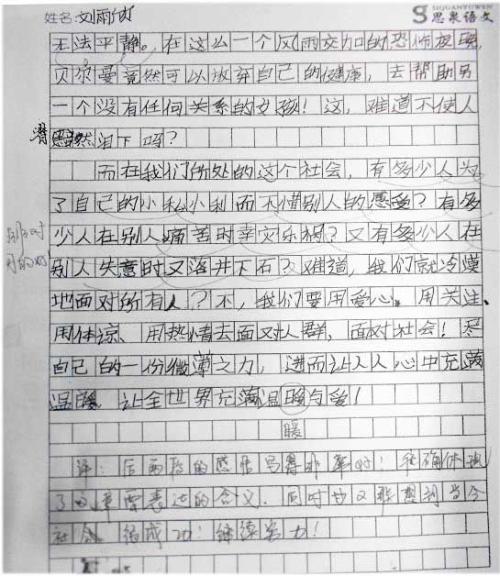 姓名:刘雨灯 SIQUANYUWEN
思泉语文
无法平静。在这么一个风雨交加的恐怖夜晚,
贝尔曼竟然可以放弃自己的健康,去帮助另
一个没有任何关系的女孩!这,难道不使人
潸然泪下吗?
而在我们所处的这个社会,有多少人为
了自己的小私小利而不懂别人的感受?有多
少人在别人痛苦时幸灾乐祸?又有多少人在
别人失意时又落井下石?难道,我们就冷漠
地面对所有人?不,我们要用爱心、用关注、
用体谅、用热情去面对人群,面对社会!尽
自己的一份微薄之力,进而让人人心中充满
温暖,让全世界充满温暖与爱!
暖
评:后两段的感悟写得非常好!准确体现
了文章要表达的含义.同时也联想到当今
社会 结成功!继续努力!